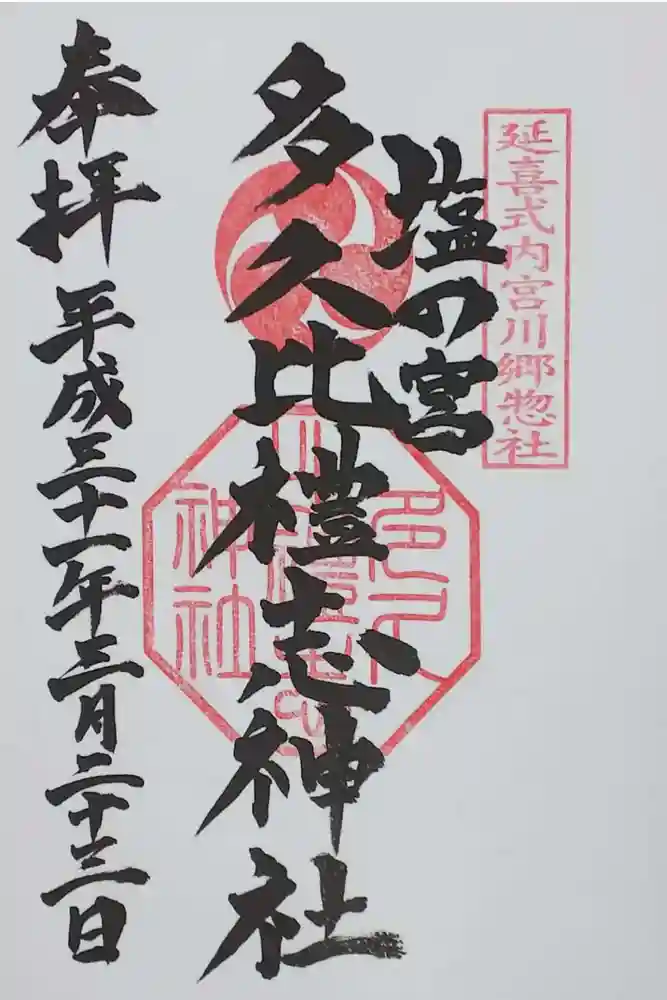 延喜式内宮川郷惣社
塩の宮
多久比禮志神社
奉拝
平成三十一年三月二十三日